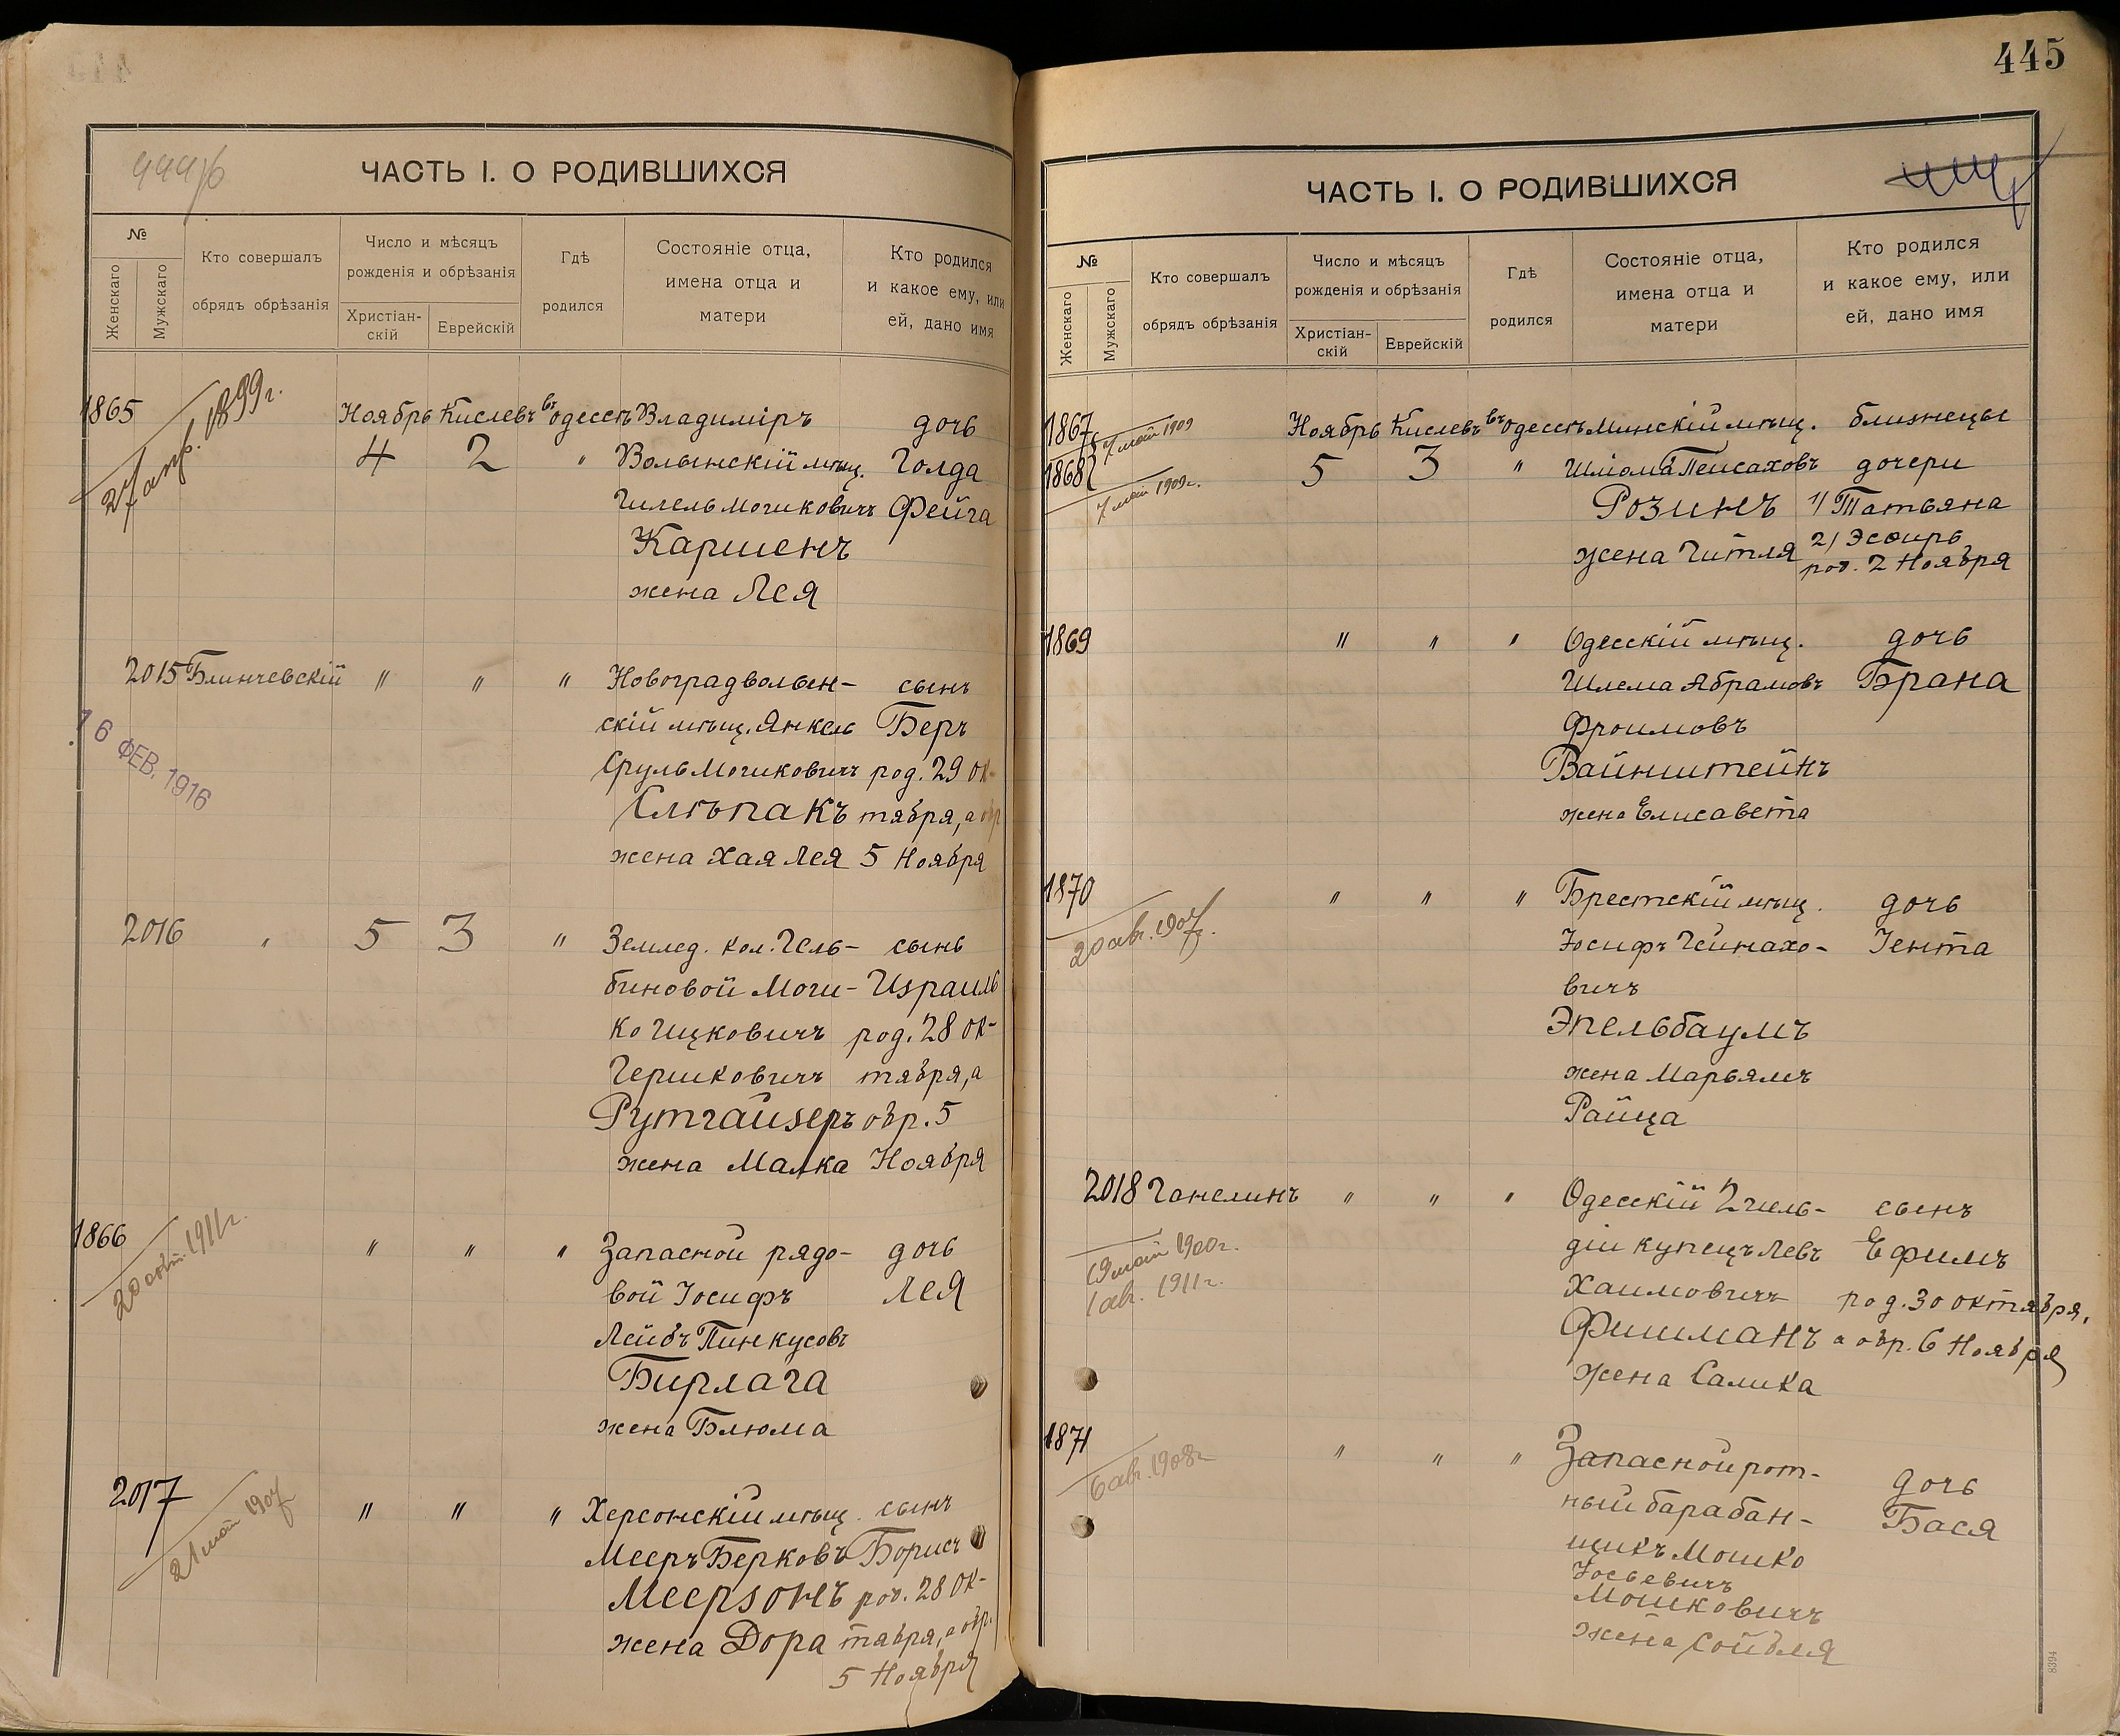 445
ЧАСТЬ I. О РОДИВШИХСЯ
№
Женскаго
Мужскаго
Кто совершалъ
обрядъ обрѣзанія
Число и мѣсяцъ
рожденія и обрѣзанія
Христіан-
скій
Еврейскій
Гдѣ
родился
Состояніе отца,
имена отца и
матери
Кто родился
и какое ему, или
ей, дано имя
1865 Ноябрь Кислевъ въ Одессѣ Владиміръ дочь
4 2 " Волынскій мѣщ. Голда
Гилель Мошковичъ Фейга
Каршенъ
жена Лея
27 апр. 1899 г.
2015 Блинчевскій " " " Новоградволын- сынъ
скій мѣщ. Янкель Беръ
Сруль Мошковичъ род. 29 ок-
Слѣпакъ тября, а обр
жена Хая Лея 5 Ноября
16 ФЕВ. 1916
2016 " 5 3 " Землед. кол. Гель- сынъ
биновой Мош- Израиль
ко Ицковичъ род. 28 ок-
Гершковичъ тября, а
Рутгайзеръ обр. 5
жена Малка Ноября
1866 " " " Запасной рядо- дочь
вой Іосифъ Лея
Лейбъ Пинкусовъ
Бирлага
жена Блюма
20 окт. 1911 г.
2017 " " " Херсонскій мѣщ. сынъ
Мееръ Берковъ Борисъ
Меерзонъ род. 28 ок-
жена Дора тября, а обр.
5 Ноября
21 май 1907
ЧАСТЬ I. О РОДИВШИХСЯ
№
Женскаго
Мужскаго
Кто совершалъ
обрядъ обрѣзанія
Число и мѣсяцъ
рожденія и обрѣзанія
Христіан-
скій
Еврейскій
Гдѣ
родился
Состояніе отца,
имена отца и
матери
Кто родился
и какое ему, или
ей, дано имя
1867 7 май 1909 Ноябрь Кислевъ въ Одессѣ Минскій мѣщ. близнецы
1868 5 3 " Шліома Пейсаховъ дочери
7 май 1909 г. Розинъ 1) Татьяна
жена Гитля 2) Эсѳирь
род. 2 Ноября
1869 " " " Одесскій мѣщ. дочь
Шлема Абрамовъ Брана
Фроимовъ
Вайнштейнъ
жена Елисавета
1870 " " " Брестскій мѣщ. дочь
20 авг. 1907 г. Іосифъ Гейнахо- Іента
вичъ
Эпельбаумъ
жена Марьямъ
Райца
2018 Ганелинъ " " " Одесскій 2 гиль- сынъ
діи купецъ Левъ Ефимъ
19 май 1900 г.
1 авг. 1911 г.
Хаимовичъ род. 30 октября,
Фишманъ а обр. 6 Ноября
жена Салика
1871 " " " Запасной рот- дочь
6 авг. 1908 г. ный барабан- Бася
щикъ Мошко
Іосьевичъ
Мошковичъ
жена Сойбля
8394